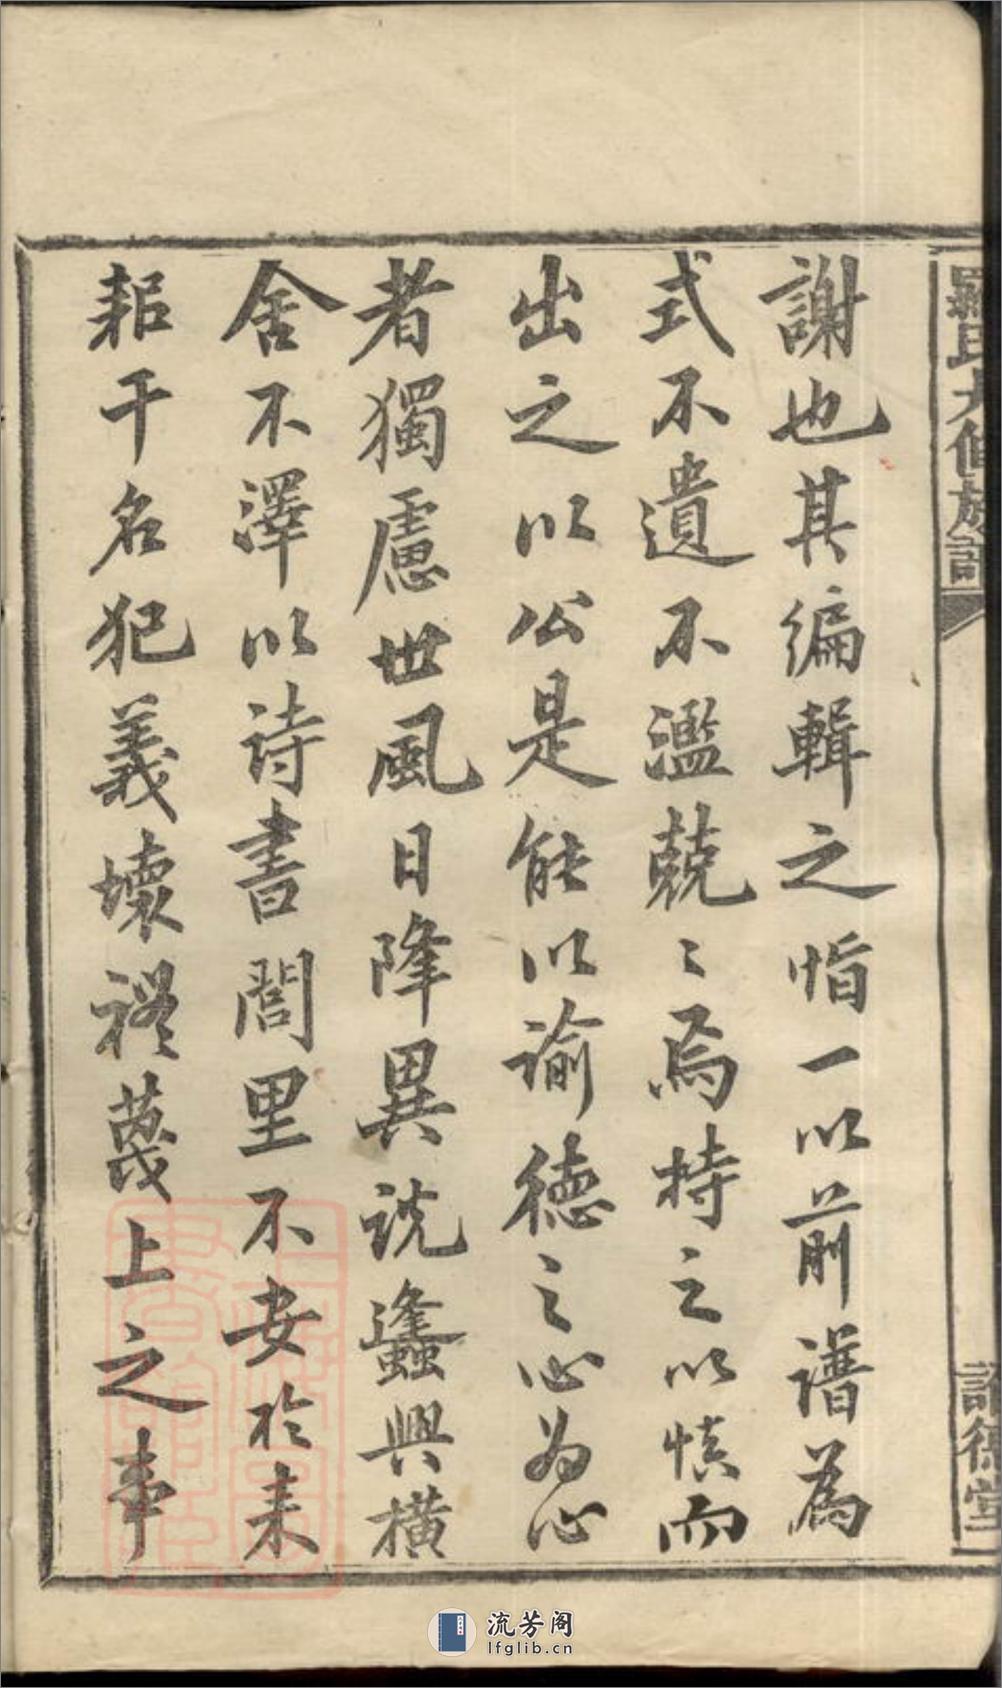 羅氏大修族譜
諭德堂
謝也其編輯之恉一以前譜為
式不遺不濫兢〻焉持之以慎而
出之以公是能以諭德之心為心
者獨慮世風日降異說蠭興橫
舍不澤以詩書閭里不安於耒
耜干名犯義壞禮蔑上之事
流芳阁
lfglib.cn